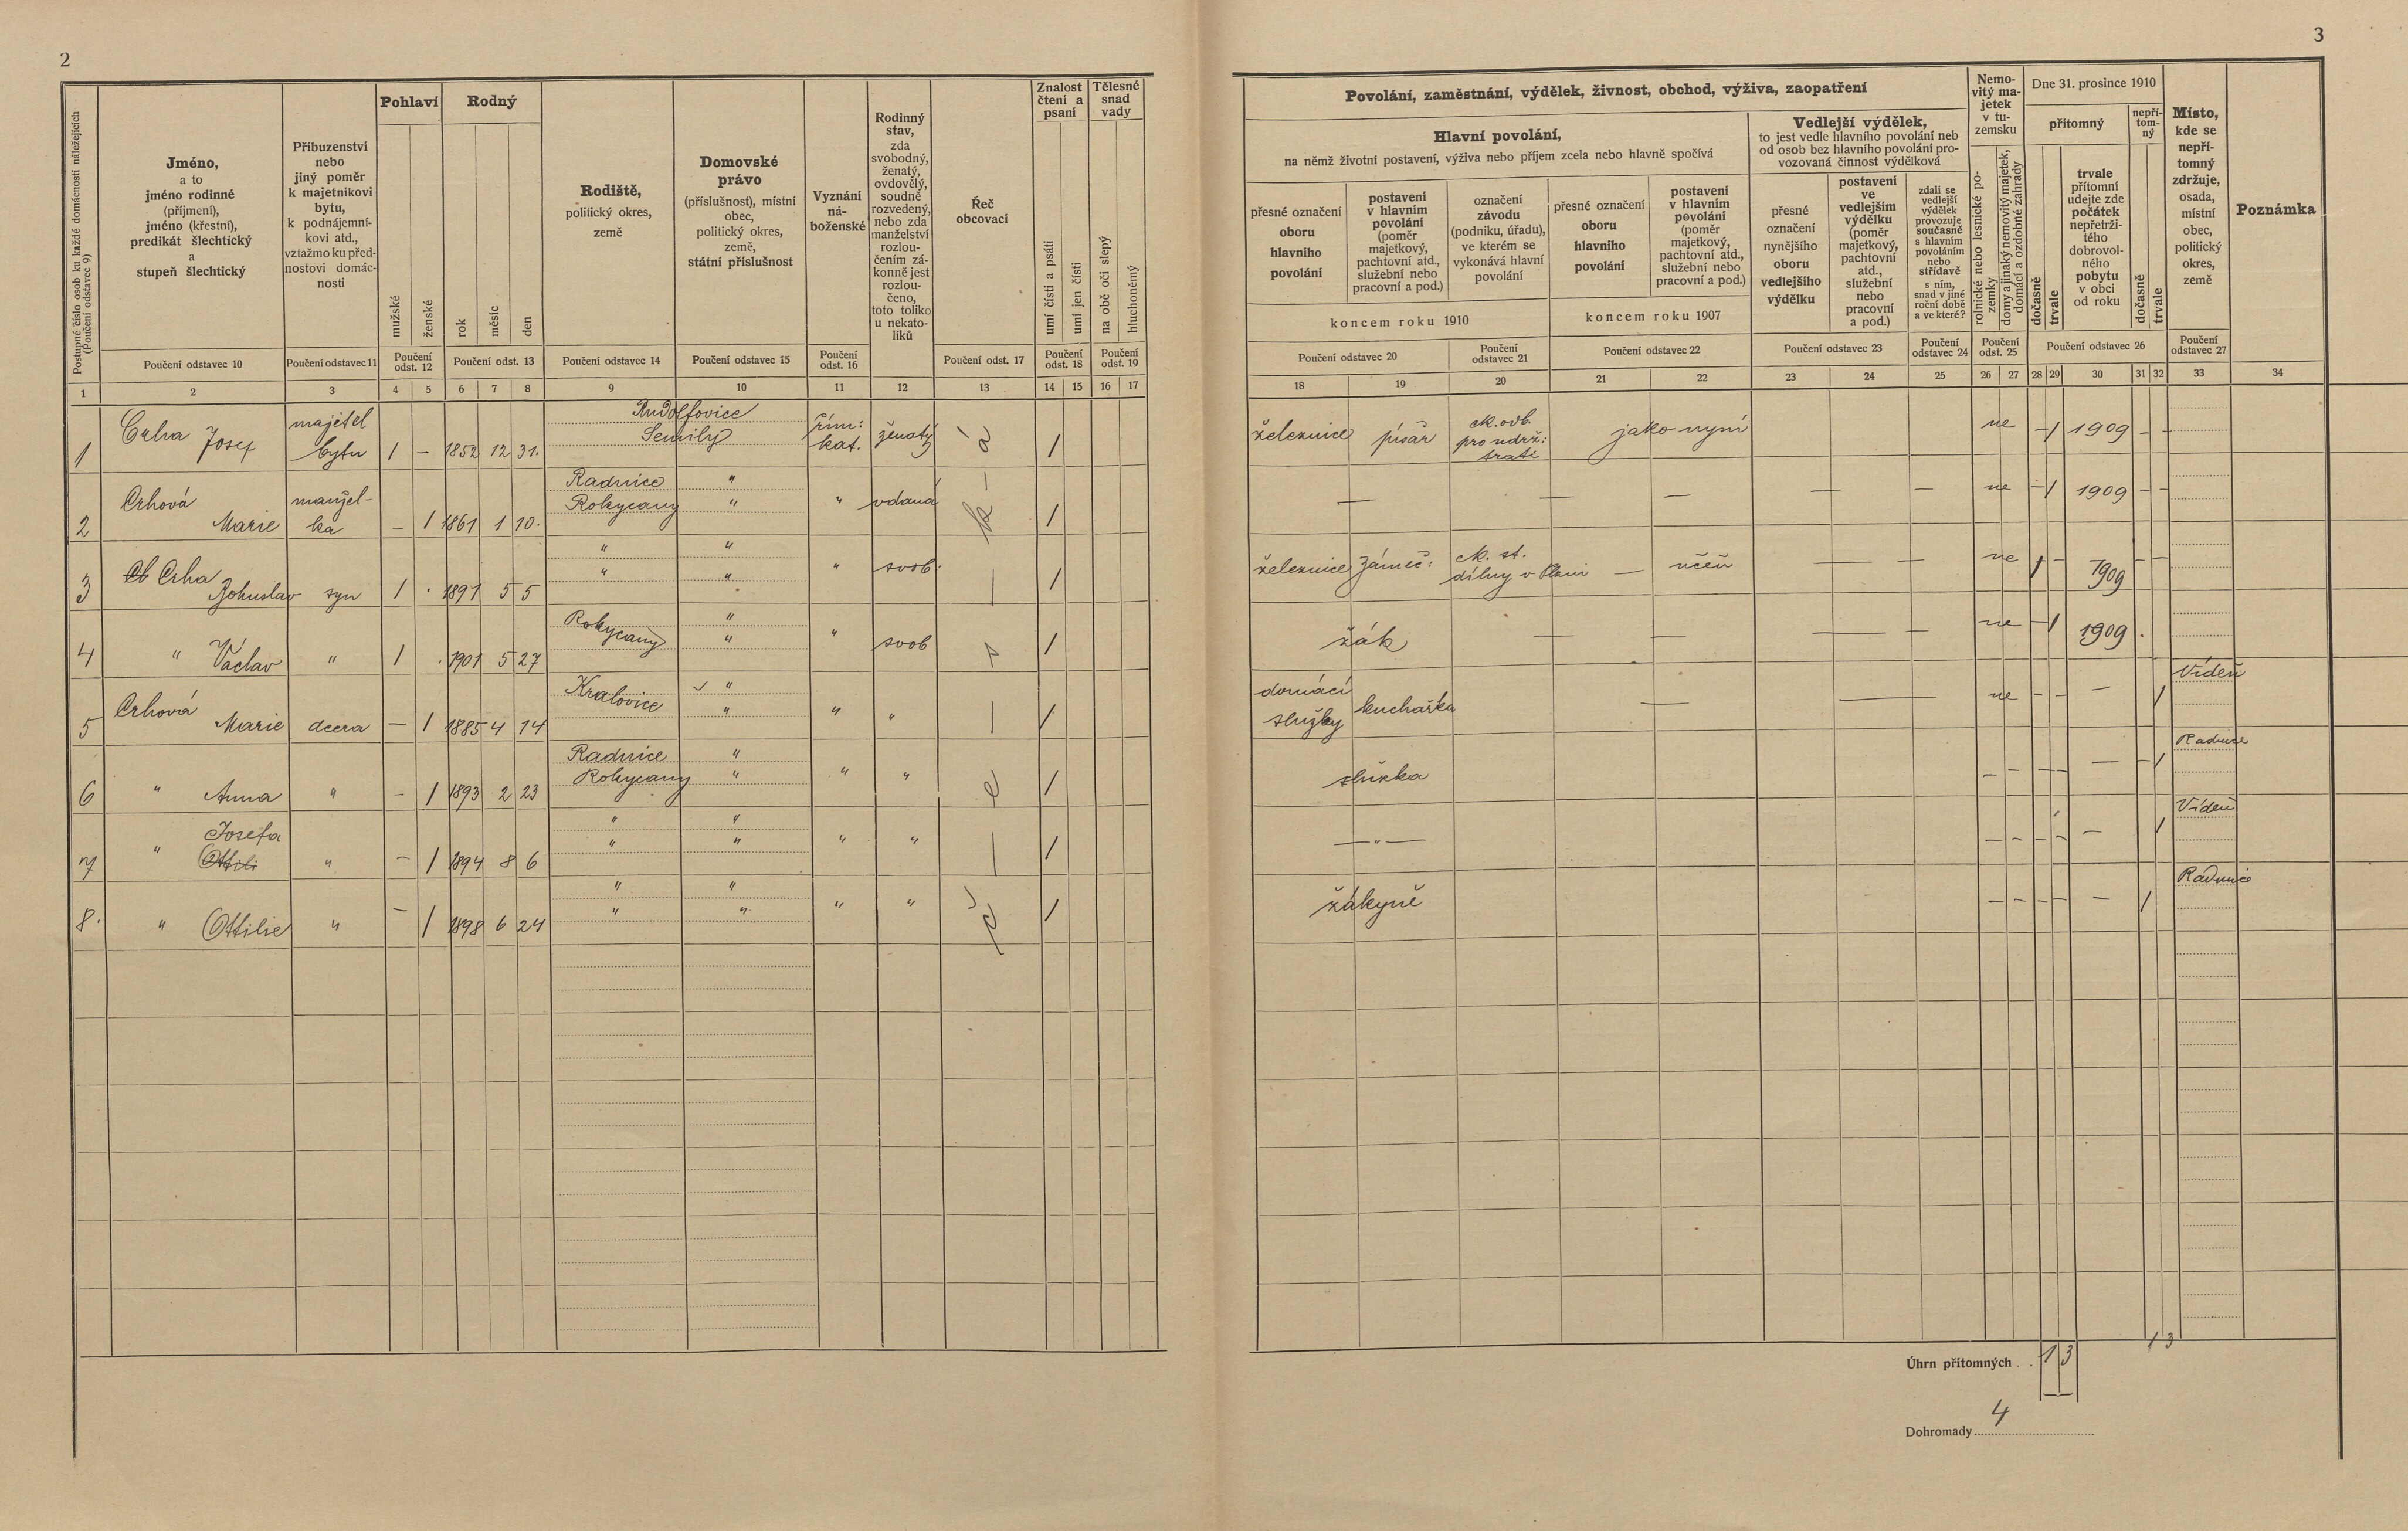 2
Postupné číslo osob ku každé domácnosti náležejících
(Poučení odstavec 9)
Jméno,
a to
jméno rodinné
(příjmení),
jméno (křestní),
predikát šlechtický
a
stupeň šlechtický
Příbuzenství
nebo
jiný poměr
k majetníkovi
bytu,
k podnájemní-
kovi atd.,
vztažmo ku před-
nostovi domác-
nosti
Pohlaví
mužské
ženské
Rodný
rok
měsíc
den
Rodiště,
politický okres,
země
Domovské
právo
(příslušnost), místní
obec,
politický okres,
země,
státní příslušnost
Vyznání
ná-
boženské
Rodinný
stav,
zda
svobodný,
ženatý,
ovdovělý,
soudně
rozvedený,
nebo zda
manželství
rozlou-
čením zá-
konně jest
rozlou-
čeno,
toto toliko
u nekato-
líků
Řeč
obcovací
Znalost
čtení a
psaní
umí čísti a psáti
umí jen čísti
Tělesné
snad
vady
na obě oči slepý
hluchoněmý
Poučení odstavec 10
Poučení odstavec 11
Poučení
odst. 12
Poučení odst. 13
Poučení odstavec 14
Poučení odstavec 15
Poučení
odst. 16
Poučení odst. 17
Poučení
odst. 18
Poučení
odst. 19
1 2 3 4 5 6 7 8 9 10 11 12 13 14 15 16 17
1 Crha Josef majetel bytu 1 – 1852 12 31. Rudolfovice Semily řím: kat. ženatý 1
2 Crhová Marie manžel- ka – 1 1861 1 10. Radnice Rokycany " " " vdaná 1
3 Crha Bohuslav syn 1 . 1891 5 5 " " " " " svob. 1
4 " Václav " 1 . 1901 5 27 Rokycany " " " svob 1
5 Crhová Marie dcera – 1 1885 4 14 Kralovice " " " " 1
6 " Anna " – 1 1893 2 23 Radnice Rokycany " " " " 1
7 " Josefa Ottili " – 1 1894 8 6 " " " " " " 1
8. " Ottilie " – 1 1898 6 24 " " " " " " 1
č – e – s – k – á
3
Povolání, zaměstnání, výdělek, živnost, obchod, výživa, zaopatření
Hlavní povolání,
na němž životní postavení, výživa nebo příjem zcela nebo hlavně spočívá
přesné označení
oboru
hlavního
povolání
postavení
v hlavním
povolání
(poměr
majetkový,
pachtovní atd.,
služební nebo
pracovní a pod.)
označení
závodu
(podniku, úřadu),
ve kterém se
vykonává hlavní
povolání
koncem roku 1910
přesné označení
oboru
hlavního
povolání
postavení
v hlavním
povolání
(poměr
majetkový,
pachtovní atd.,
služební nebo
pracovní a pod.)
koncem roku 1907
Vedlejší výdělek,
to jest vedle hlavního povolání neb
od osob bez hlavního povolání pro-
vozovaná činnost výdělková
přesné
označení
nynějšího
oboru
vedlejšího
výdělku
postavení
ve
vedlejším
výdělku
(poměr
majetkový,
pachtovní
atd.,
služební
nebo
pracovní
a pod.)
zdali se
vedlejší
výdělek
provozuje
současně
s hlavním
povoláním
nebo
střídavě
s ním,
snad v jiné
roční době
a ve které?
Nemo-
vitý ma-
jetek
v tu-
zemsku
rolnické nebo lesnické po-
zemky
domy a jinaký nemovitý majetek,
domácí a ozdobné zahrady
Dne 31. prosince 1910
přítomný
dočasně
trvale
trvale
přítomní
udejte zde
počátek
nepřetrži-
tého
dobrovol-
ného
pobytu
v obci
od roku
nepří-
tom-
ný
dočasně
trvale
Místo,
kde se
nepří-
tomný
zdržuje,
osada,
místní
obec,
politický
okres,
země
Poznámka
Poučení odstavec 20
Poučení
odstavec 21
Poučení odstavec 22
Poučení odstavec 23
Poučení
odstavec 24
Poučení
odst. 25
Poučení odstavec 26
Poučení
odstavec 27
18 19 20 21 22 23 24 25 26 27 28 29 30 31 32 33 34
železnice písař ck. odb. pro udrž: trati jako nyní ne – 1 1909 – –
— — — — — ne – 1 1909 – –
železnice zámeč: ck. st. dílny v Plzni — učeň — — ne 1 – 1909 – –
žák — — — — ne – 1 1909 .
domácí služby kuchařka — — ne – – — 1 Vídeň
služka – – – – — – 1 Radnice
— " — – – – – — 1 Vídeň
žákyně – – – – — 1 Radnice
1 3
Úhrn přítomných . . 1 3
Dohromady 4